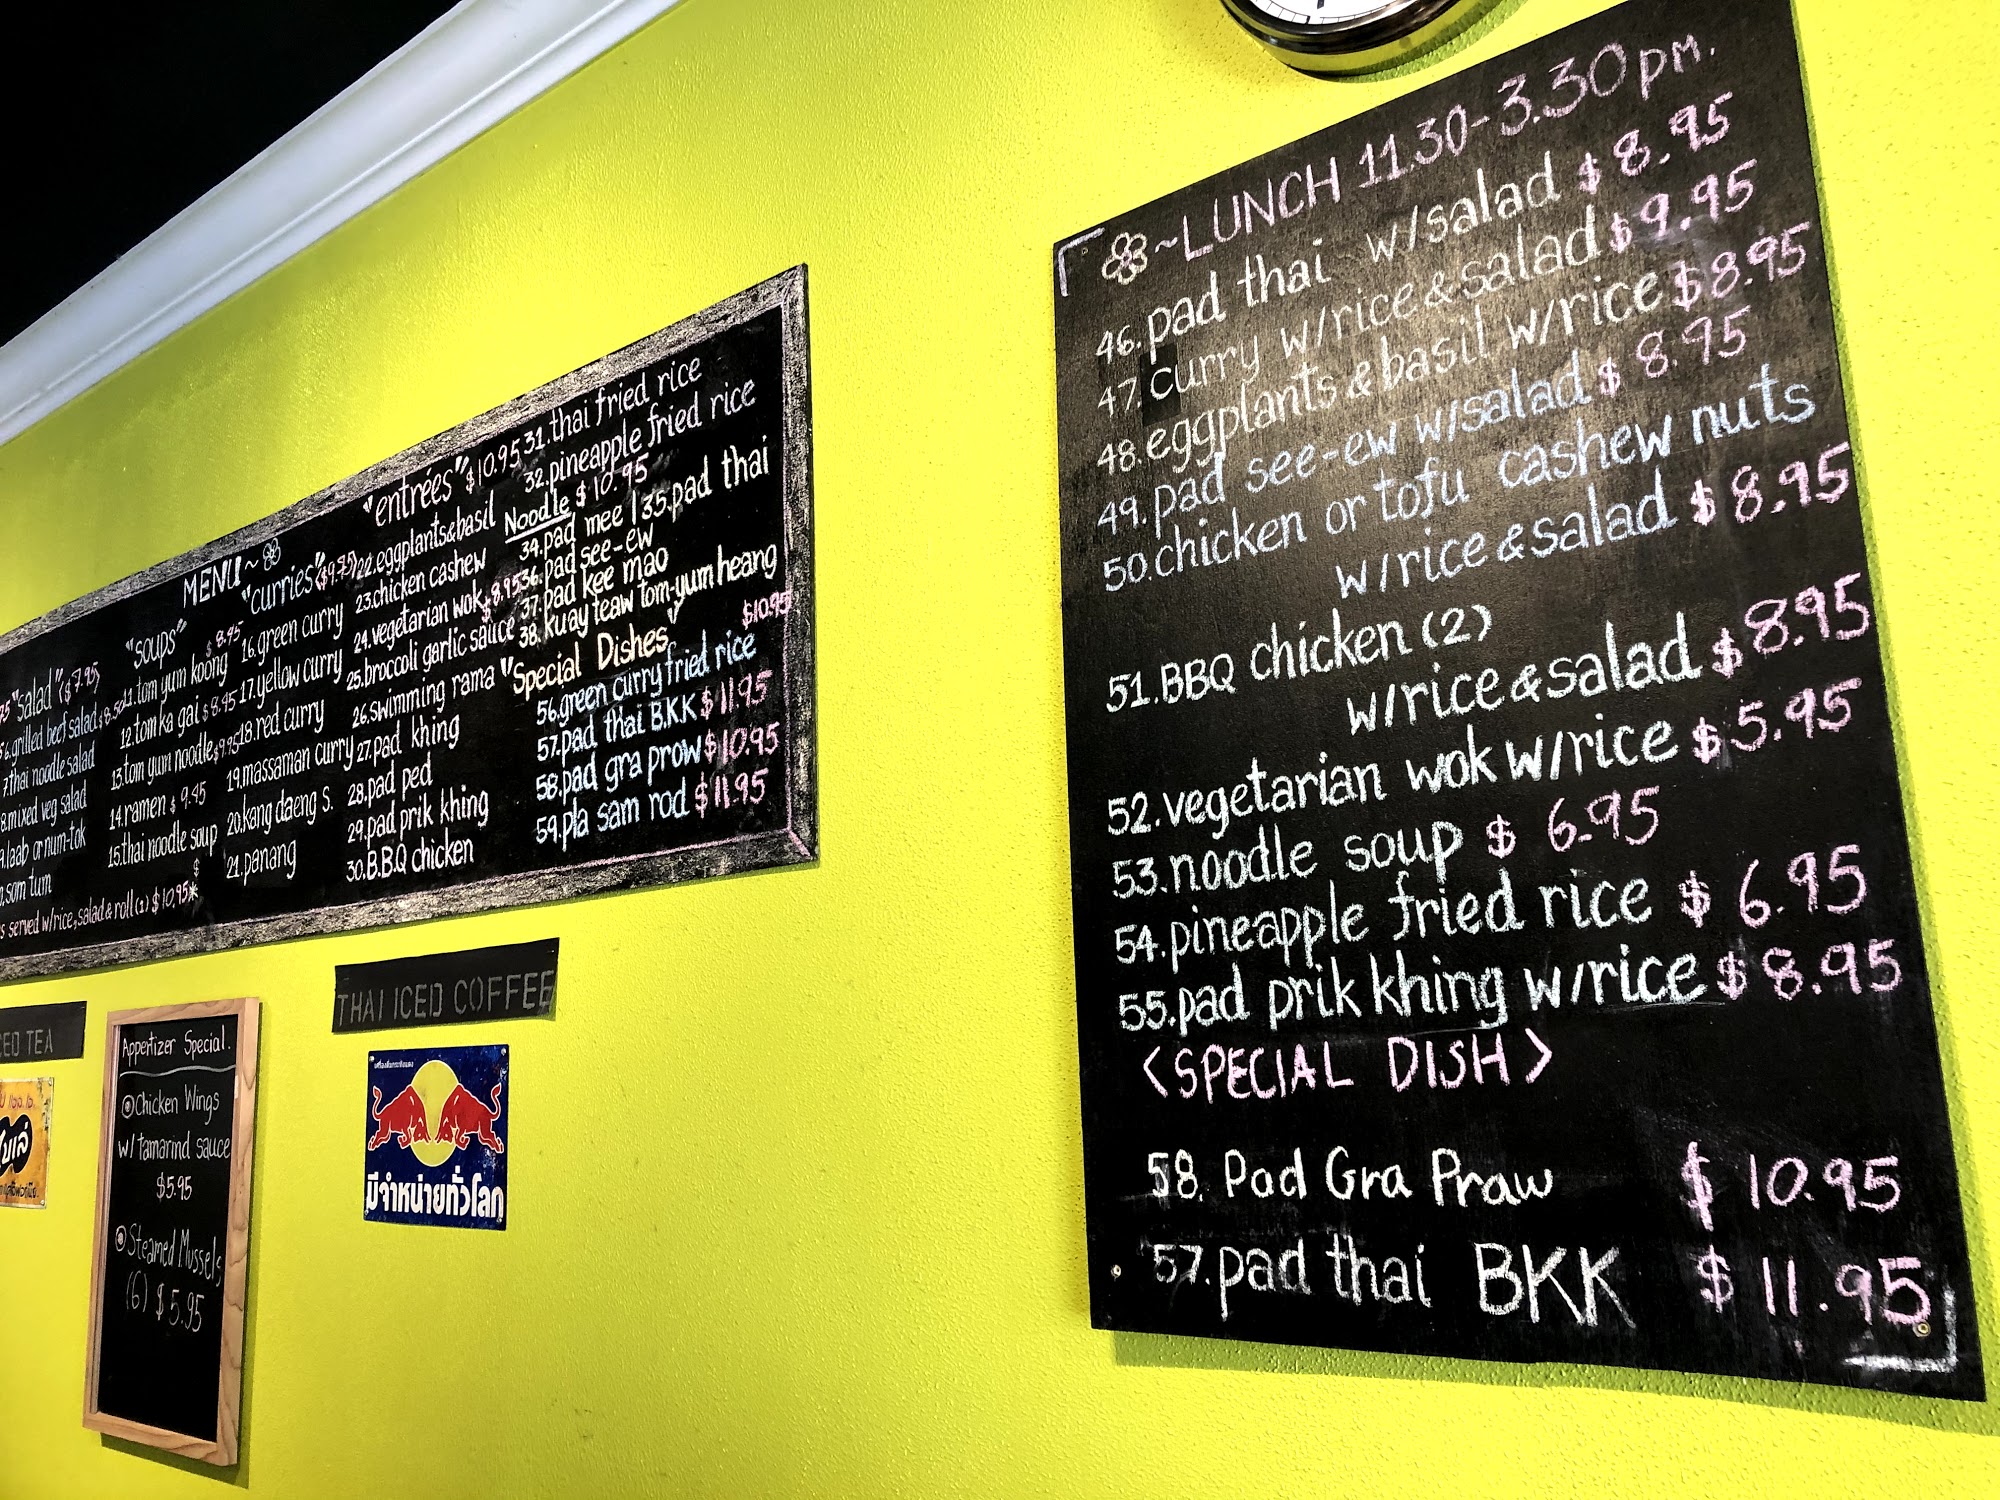 MENU~
"salad" ($7.95)
6.grilled beef salad $8.50
7.thai noodle salad
8.mixed veg salad
9.laab or num-tok
som tum
served w/rice, salad & roll (1) $10.95*
"soups"
$8.95
11.tom yum koong
12.tom ka gai $8.95
13.tom yum noodle $9.95
14.ramen $9.45
15.thai noodle soup
$
"curries" ($9.95)
16.green curry
17.yellow curry
18.red curry
19.massaman curry
20.kang daeng s.
21.panang
"entrées" $10.95
22.eggplants&basil
23.chicken cashew
24.vegetarian wok $8.95
25.broccoli garlic sauce
26.swimming rama
27.pad khing
28.pad ped
29.pad prik khing
30.B.B.Q chicken
31.thai fried rice
32.pineapple fried rice
Noodle $10.95
34.pad mee | 35.pad thai
36.pad see-ew
37.pad kee mao
38.kuay teaw tom-yum heang
"Special Dishes"
$10.95
56.green curry fried rice
57.pad thai B.K.K $11.95
58.pad gra prow $10.95
59.pla sam rod $11.95
~LUNCH 11.30-3.30pm.
46.pad thai w/salad $8.95
47.curry w/rice&salad $9.95
48.eggplants&basil w/rice $8.95
49.pad see-ew w/salad $8.95
50.chicken or tofu cashew nuts
w/rice&salad $8.95
51.BBQ chicken (2)
w/rice&salad $8.95
52.vegetarian wok w/rice $5.95
53.noodle soup $6.95
54.pineapple fried rice $6.95
55.pad prik khing w/rice $8.95
<SPECIAL DISH>
58. Pad Gra Praw $10.95
57.pad thai BKK $11.95
TEA
THAI ICED COFFEE
Appetizer Special.
Chicken Wings
w/ tamarind sauce
$5.95
Steamed Mussels
(6) $5.95
มีจำหน่ายทั่วโลก